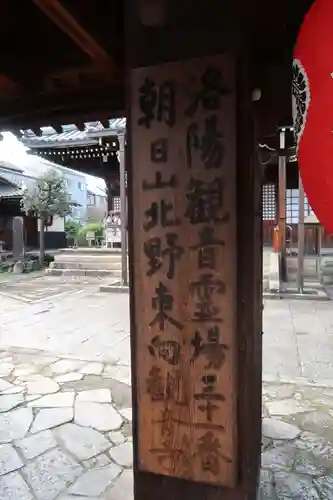 洛陽觀音霊場三十一番
朝日山北野東向観音寺